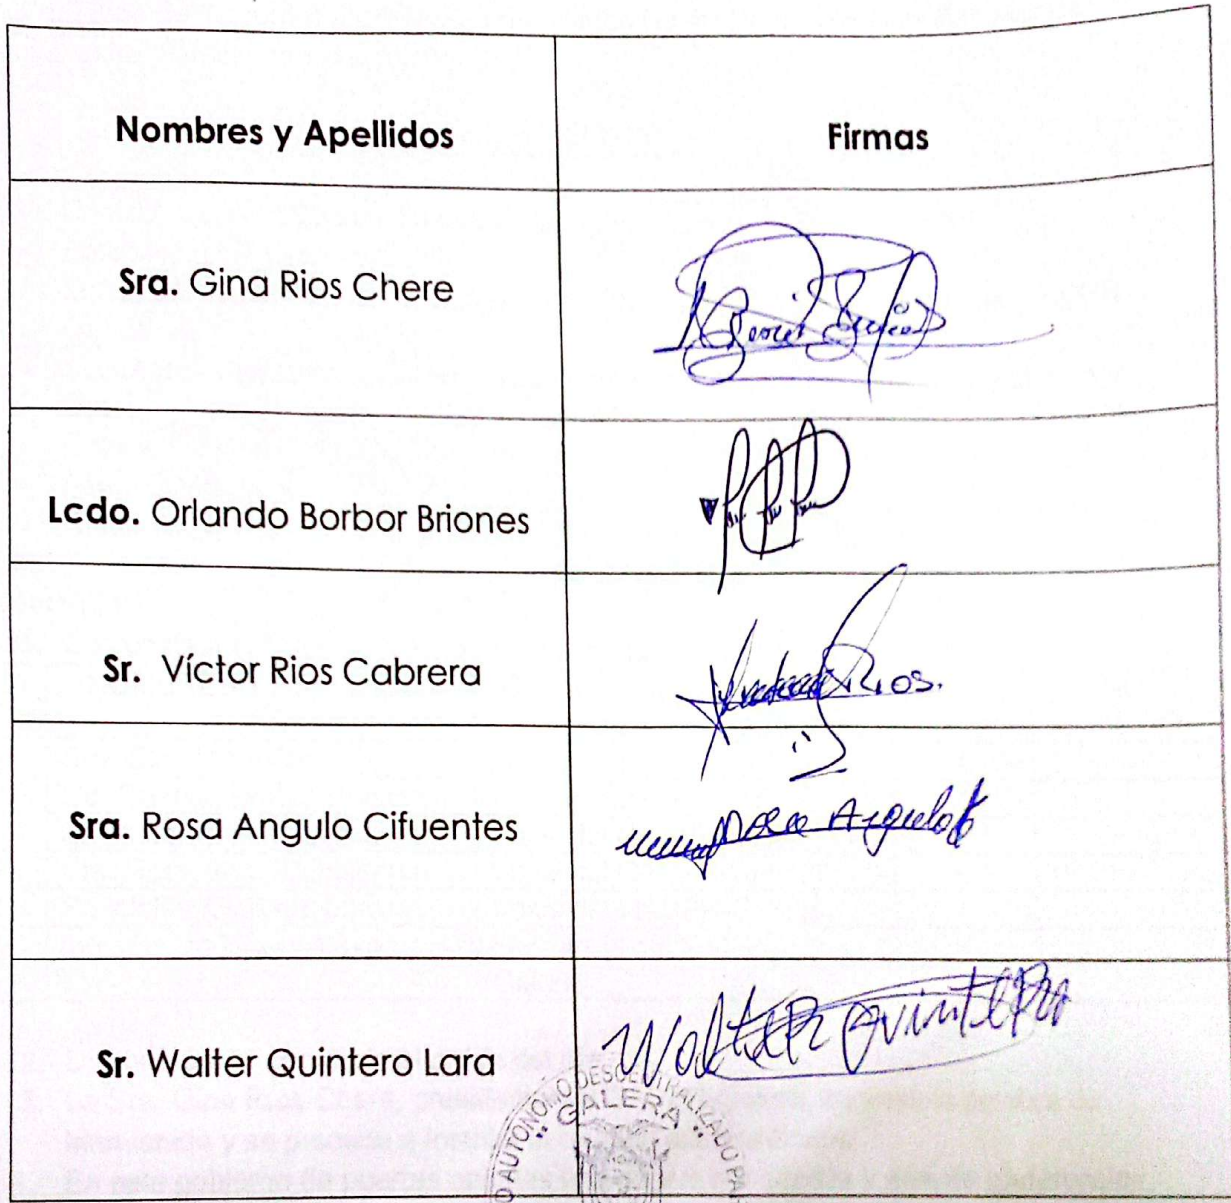 Nombres y Apellidos Firmas
Sra. Gina Rios Chere
Lcdo. Orlando Borbor Briones
Sr. Víctor Rios Cabrera Rios.
Sra. Rosa Angulo Cifuentes Rosa Angulo
Sr. Walter Quintero Lara Walter Quintero
AUTONOMO DESCENTRALIZADO
"GALERA"